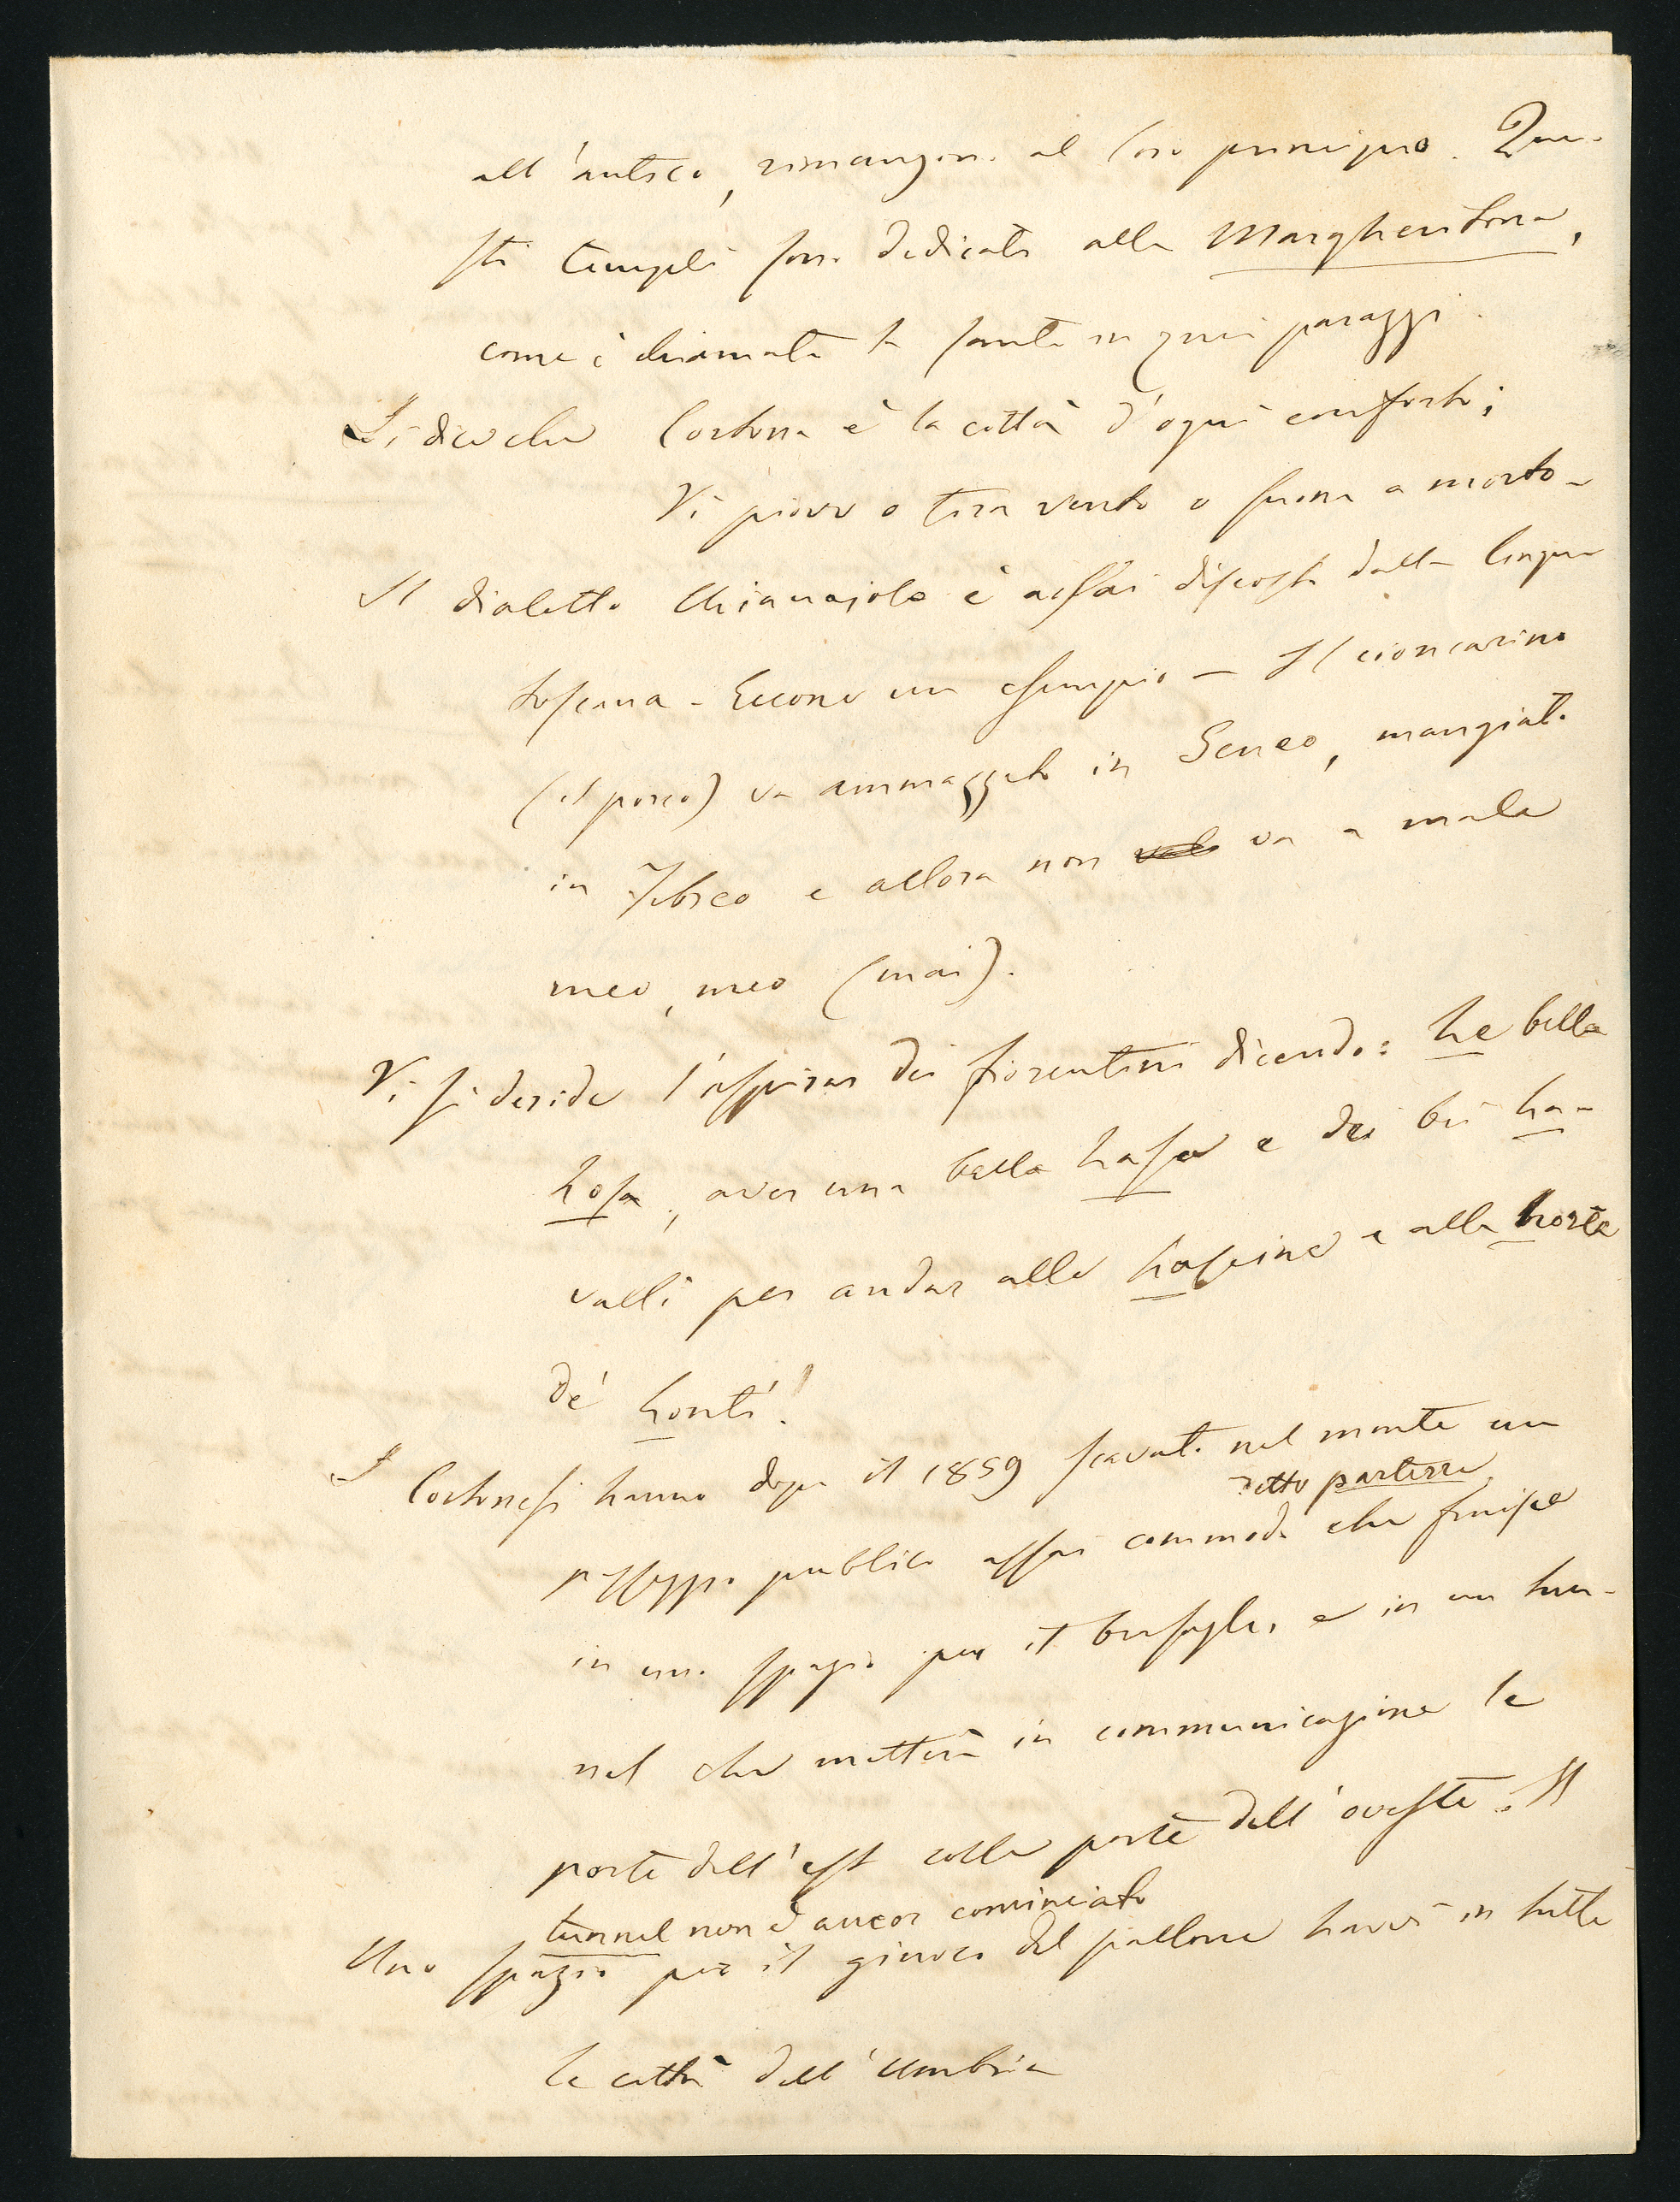 all'antico, rimangono al loro principio. Que-
sti templi sono dedicati alla Margheritona,
come è chiamata la santa in quei paraggi.
Si dice che Cortona è la città d'ogni conforto;
Vi piove o tira vento o suona a morto-
Il dialetto Chianajolo è assai discosto dalla lingua
toscana - Eccone un esempio - Il cioncarino
(il porco) va ammazzato in Geneo, mangiato
in Febreo e allora non va a male
meo, meo (mai).
Vi si deride l'aspirar dei fiorentini dicendo: he bella
hosa, aver una bella hasa e dei bù ha-
valli per andar alle hascine e alla horte
de' honti!
I Cortonesi hanno dopo il 1859 scavato nel monte un
detto parterre
passeggio pubblico assai commodo che finisce
in uno spazio per il bersaglio, e in un tun-
nel che metterà in communicazione le
porte dell'est colle porte dell'oveste. Il
tunnel non è ancor cominciato
Uno spazio per il giuoco del pallone havvi in tutte
le città dell'Umbria